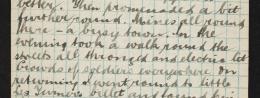 better. Then promenaded a bit
further round. Mines all round
here - a busy town. In the
evening took a walk round the
streets all thronged and electric lit
Crowds of soldiers everywhere. On
returning went round to little
Les Turner's billet and found his